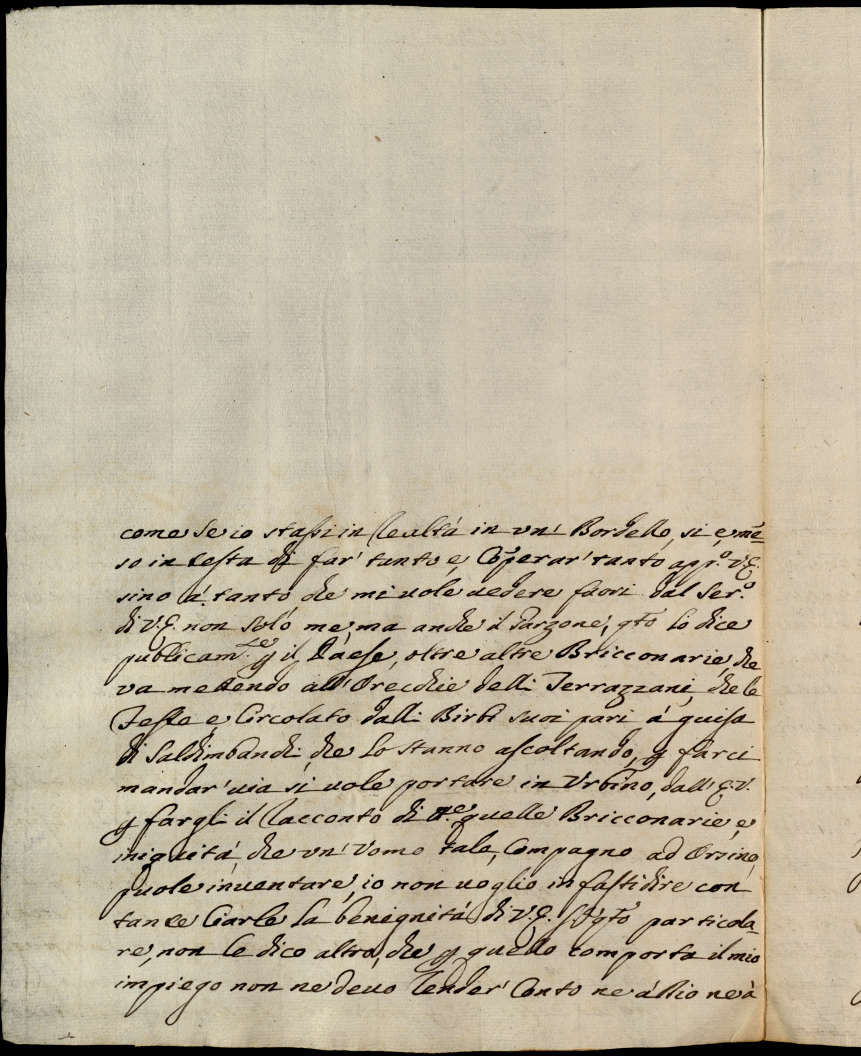 come se io stassi in realtà in un' Bordello, si è, më=
so in testa di far' tanto e, Coöperar' tanto app.o V.E.
sino a' tanto che mi vole vedere fuori dal Ser.o
di V.E. non solo me, ma anche il Garzone, q.to lo dice
publicam.te p il Paese, oltre altre Bricconarie, che
va mettendo all' Orecchie delli Terrazzani, che le
Feste è, Circolato dalli Birbi suoi pari a' guisa
di Saldimbanchi, che lo stanno ascoltando, p farci
mandar' via si vole portare in Urbino, dall' E.V.
p fargli il racconto di quelle Bricconarie, e,
iniquità, che un' Uomo tale, Compagno ad Orsino,
puole inventare, io non voglio infastidire con
tante Ciarle la benignità di V.E. q.to particola=
re, non le dico altro, che p quello comporta il mio
impiego non ne devo render' Conto ne à Dio ne à